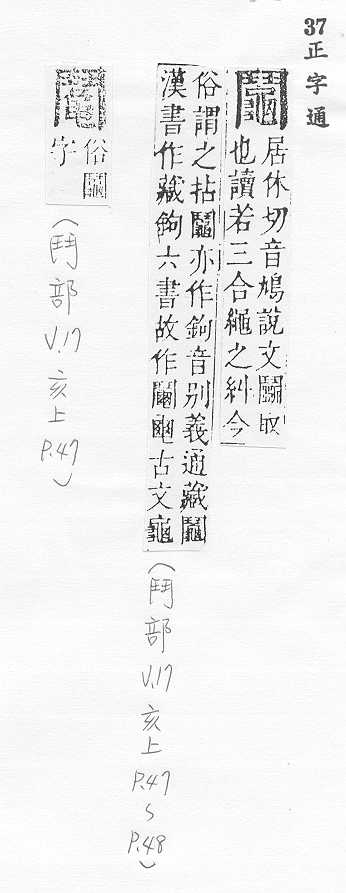 37正字通
鬮居休切音鳩說文鬭取
也讀若三合繩之糾今
俗謂之拈鬮亦作鉤音別義通藏鬮
漢書作藏鉤六書故作古文
（鬥部 V.17 亥上 P.47~P.48）
俗鬮
字
（鬥部 V.17 亥上 P.47）